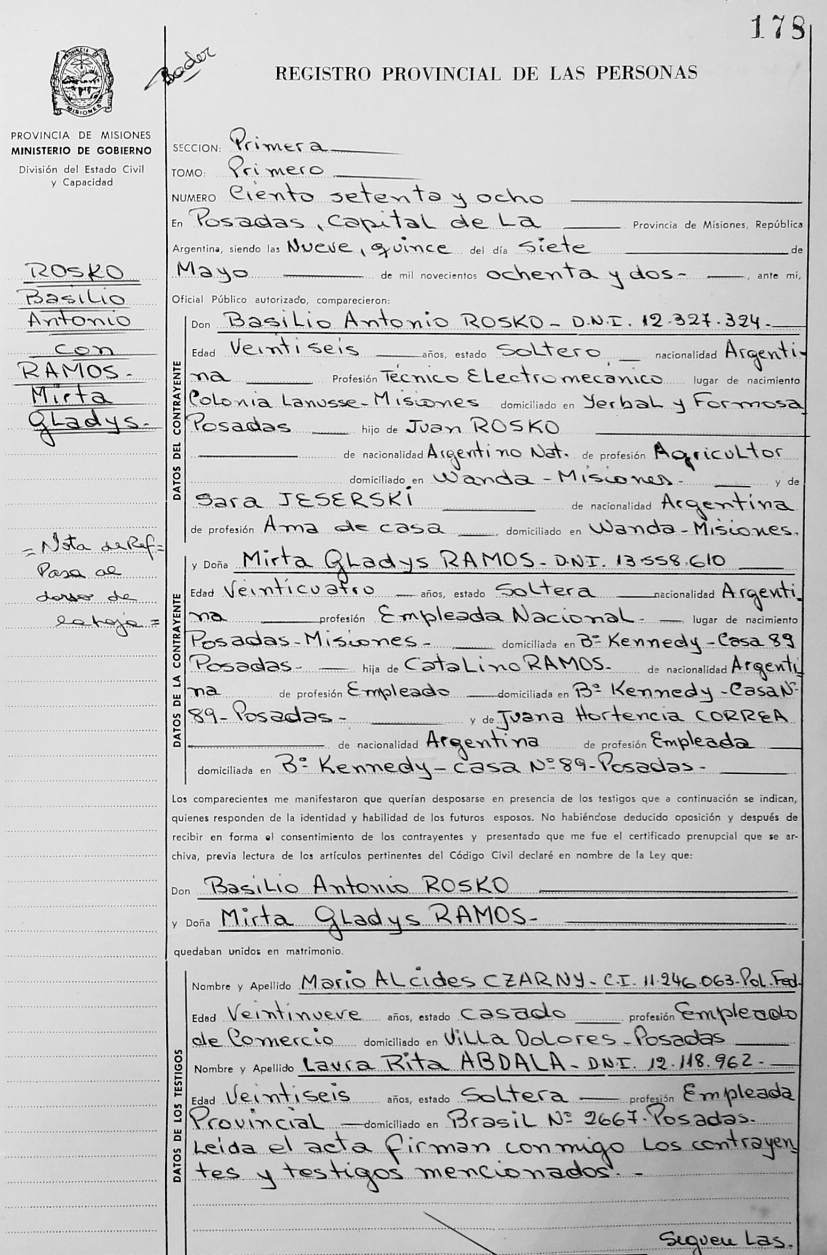 178
Bader
REGISTRO PROVINCIAL DE LAS PERSONAS
PROVINCIA DE MISIONES
MINISTERIO DE GOBIERNO
División del Estado Civil
y Capacidad
ROSKO
Basilio
Antonio
con
RAMOS-
Mirta
Gladys-
= Nota de Ref=
Pasa al
dorso de
la hoja =
SECCION: Primera
TOMO: Primero
NUMERO Ciento setenta y ocho
En Posadas, Capital de La Provincia de Misiones, República
Argentina, siendo las Nueve, quince del día Siete de
Mayo de mil novecientos ochenta y dos- , ante mí,
Oficial Público autorizado, comparecieron:
DATOS DEL CONTRAYENTE
Don Basilio Antonio ROSKO - D.N.I. 12.327.324.-
Edad Veintiseis años, estado Soltero nacionalidad Argenti-
na Profesión Técnico Electromecánico lugar de nacimiento
Colonia Lanusse-Misiones domiciliado en Yerbal y Formosa
Posadas hijo de Juan ROSKO
de nacionalidad Argentino Nat. de profesión Agricultor
domiciliado en Wanda - Misiones - y de
Sara JESERSKI de nacionalidad Argentina
de profesión Ama de casa , domiciliado en Wanda-Misiones.
DATOS DE LA CONTRAYENTE
y Doña Mirta Gladys RAMOS - D.N.I. 13.558.610
Edad Veinticuatro años, estado Soltera nacionalidad Argenti
na profesión Empleada Nacional - lugar de nacimiento
Posadas-Misiones- domiciliada en Bº Kennedy-Casa 89
Posadas- hija de Catalino RAMOS- de nacionalidad Argenti
na de profesión Empleado domiciliada en Bº Kennedy-Casa Nº
89-Posadas- y de Juana Hortencia CORREA
de nacionalidad Argentina de profesión Empleada
domiciliada en Bº Kennedy-casa Nº 89-Posadas-
Los comparecientes me manifestaron que querían desposarse en presencia de los testigos que a continuación se indican,
quienes responden de la identidad y habilidad de los futuros esposos. No habiéndose deducido oposición y después de
recibir en forma el consentimiento de los contrayentes y presentado que me fue el certificado prenupcial que se ar-
chiva, previa lectura de los artículos pertinentes del Código Civil declaré en nombre de la Ley que:
Don Basilio Antonio ROSKO
y Doña Mirta Gladys RAMOS-
quedaban unidos en matrimonio.
DATOS DE LOS TESTIGOS
Nombre y Apellido Mario Alcides CZARNY - C.I. 11.246.063-Pol.Fed.
Edad Veintinueve años, estado casado profesión Empleado
de Comercio domiciliado en Villa Dolores-Posadas
Nombre y Apellido Laura Rita ABDALA - DNI. 12.118.962-
Edad Veintiseis años, estado Soltera profesión Empleada
Provincial domiciliado en Brasil Nº 2667-Posadas-
Leída el acta firman conmigo los contrayen
tes y testigos mencionados.-
Siguen Las.